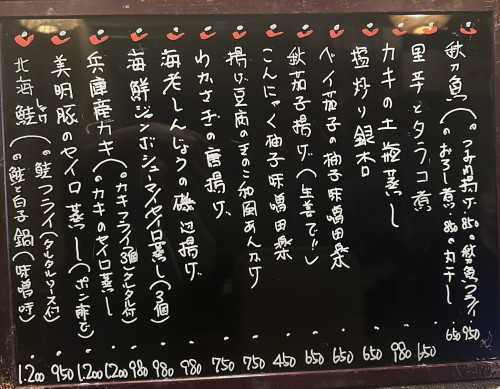 秋刀魚(の つみれ揚げ・850 の 秋刀魚フライ・950
の おろし煮・850 の 丸干し・650
里芋とタラコ煮 650
カキの土瓶蒸し 980
塩炒り銀杏 650
ベイ茄子の柚子味噌田楽 650
秋茄子揚げ(生姜で!!) 650
こんにゃく柚子味噌田楽 450
揚げ豆腐のきのこ和風あんかけ 750
わかさぎの唐揚げ 750
海老しんじょうの磯辺揚げ 980
海鮮ジャンボシューマイセイロ蒸し(3個) 980
兵庫産カキ(の カキフライ3個タルタル付 980
の カキのセイロ蒸し 1,200
美明豚のセイロ蒸し(ポン酢で) 1,200
北海鮭(の 鮭フライ(タルタルソース付) 950
の 鮭と白子鍋(味噌味) 1,200